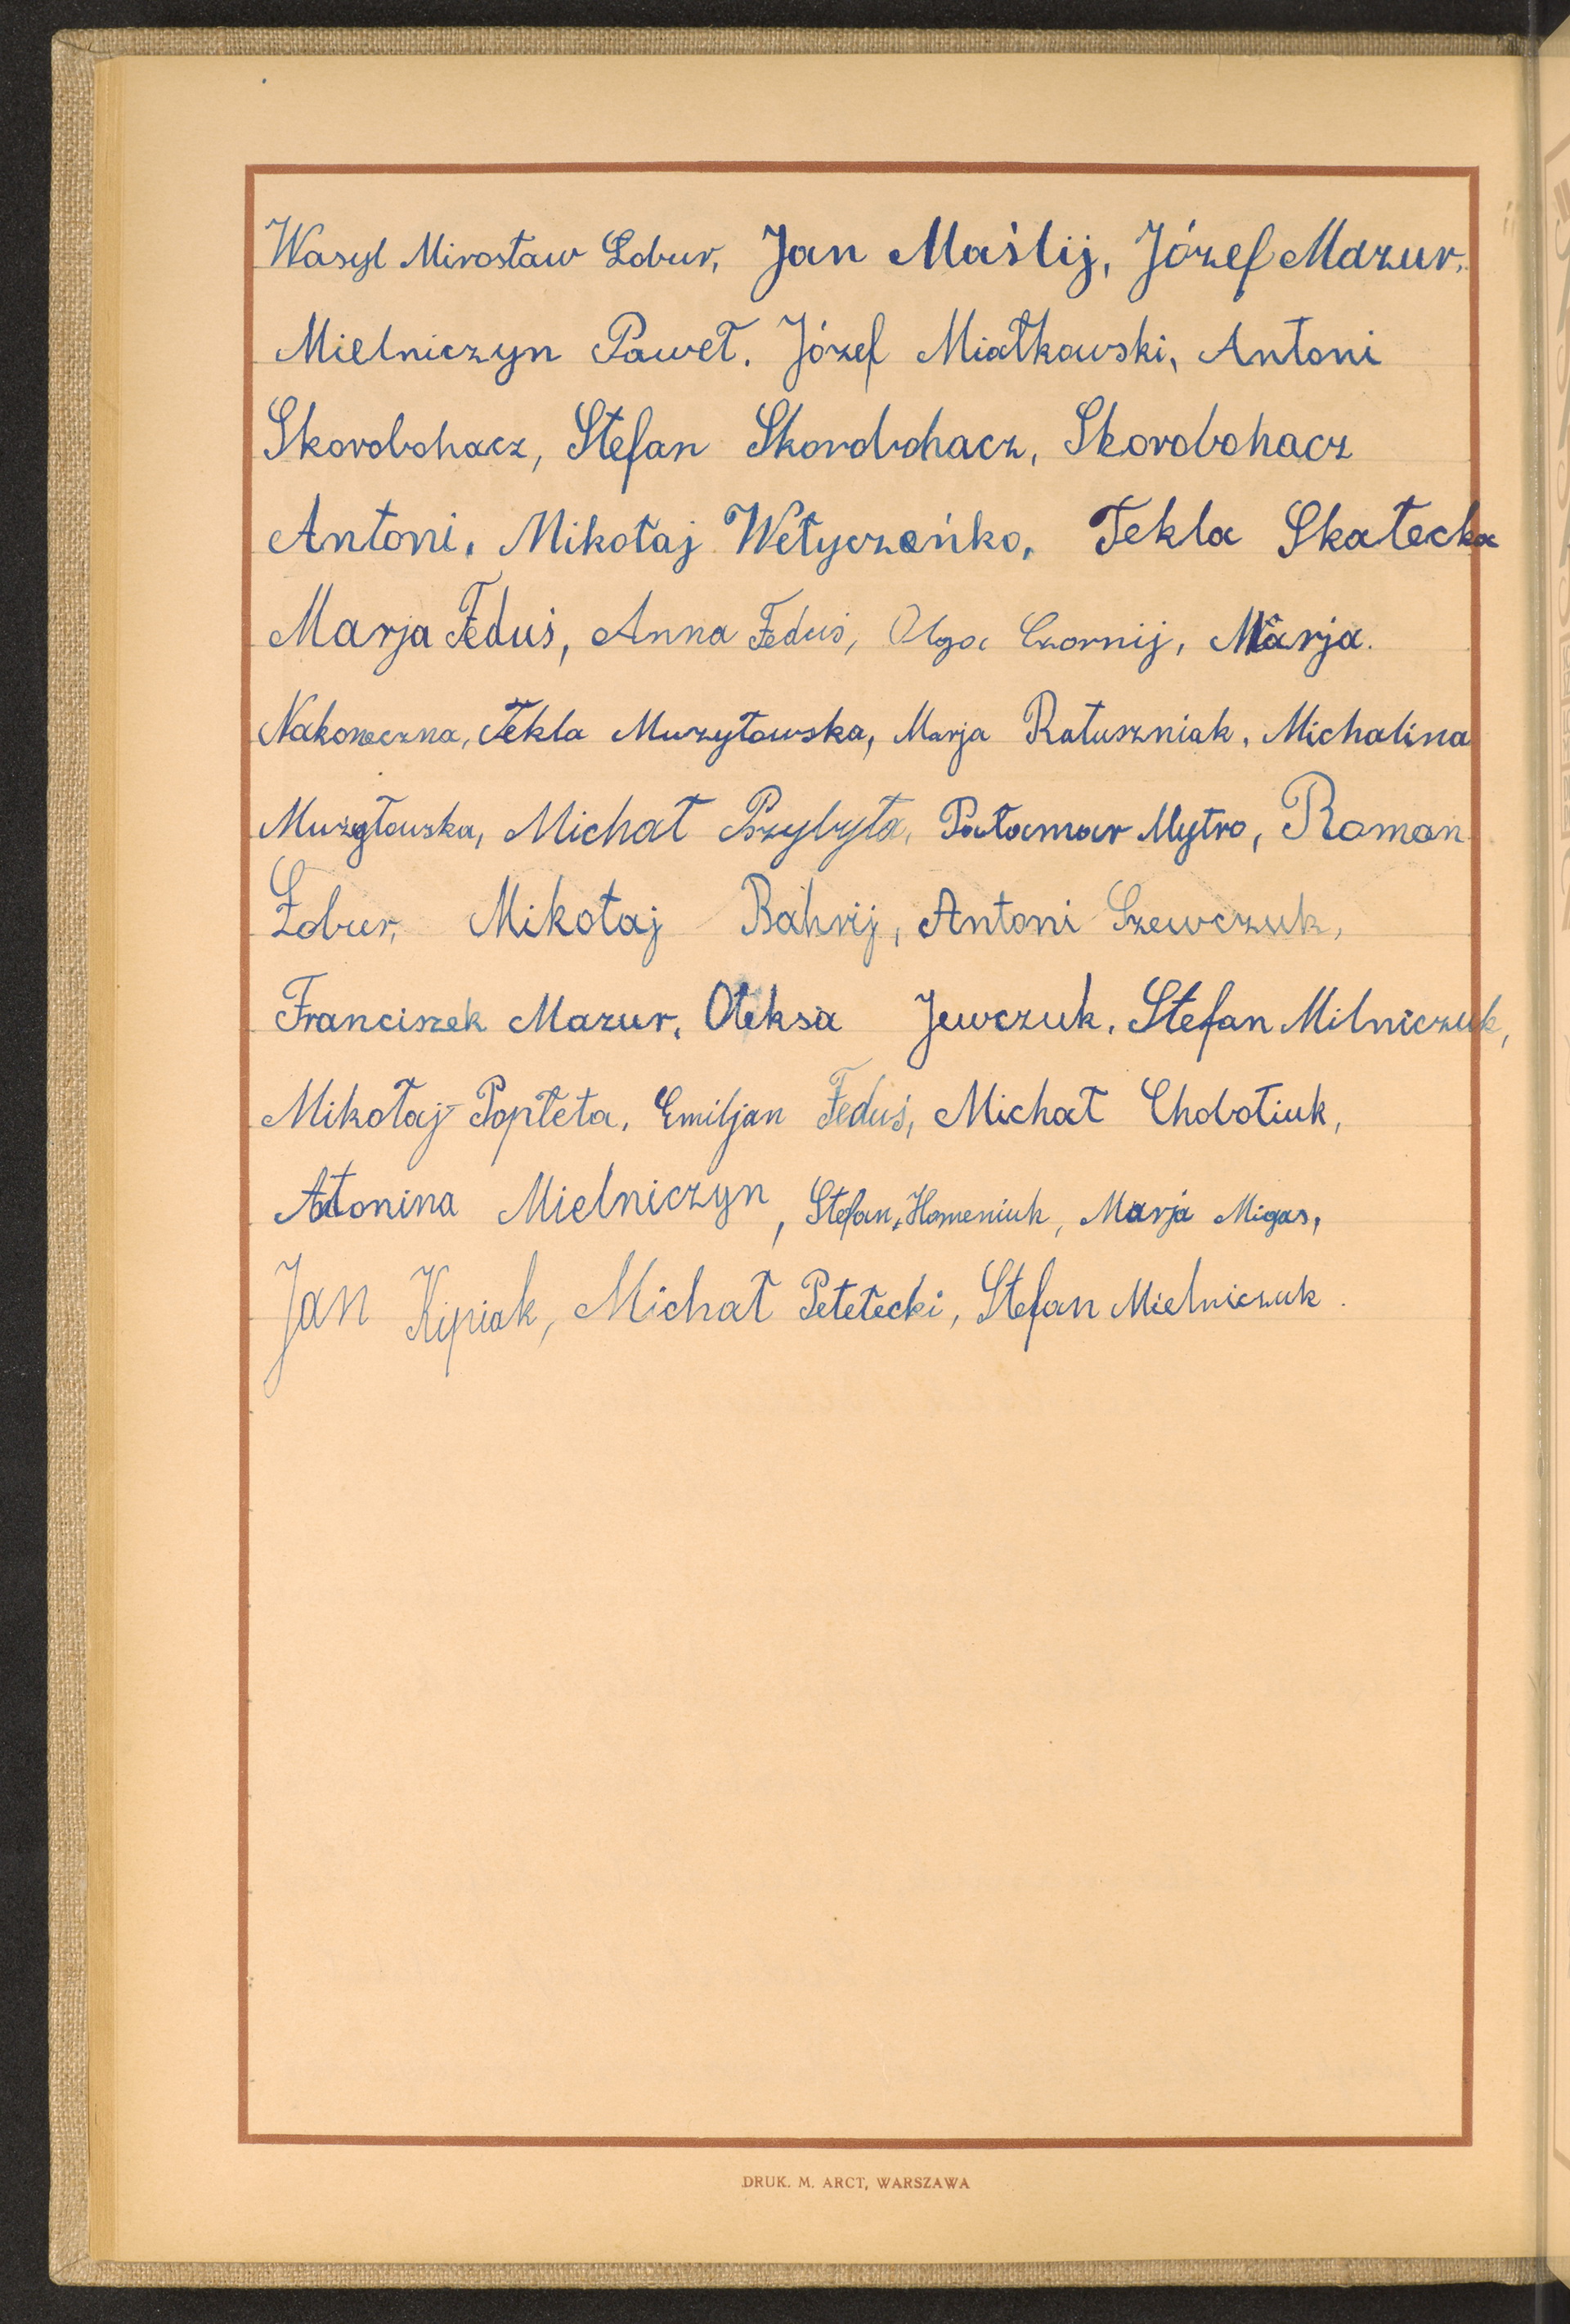 Wasyl Mirosław Łobur, Jan Maślij, Józef Mazur,
Mielniczyn Paweł. Józef Miałkowski, Antoni
Skorobohacz, Stefan Skorobohacz, Skorobohacz
Antoni, Mikołaj Wełyczeńko, Tekla Skałecka
Marja Feduś, Anna Feduś, Olga Czornij, Marja.
Nakoneczna, Tekla Muzyłowska, Marja Ratuszniak, Michalina
Muzyłowska, Michał Przybyła, Pałamar Mytro, Roman
Łobur, Mikołaj Bahrij, Antoni Szewczuk,
Franciszek Mazur, Ołeksa Jewczuk, Stefan Milniczuk,
Mikołaj Popłeta, Emiljan Feduś, Michał Chobotiuk,
Antonina Mielniczyn, Stefan, Homeniuk, Marja Migas,
Jan Kipiak, Michał Petełecki, Stefan Mielniczuk.
DRUK. M. ARCT, WARSZAWA